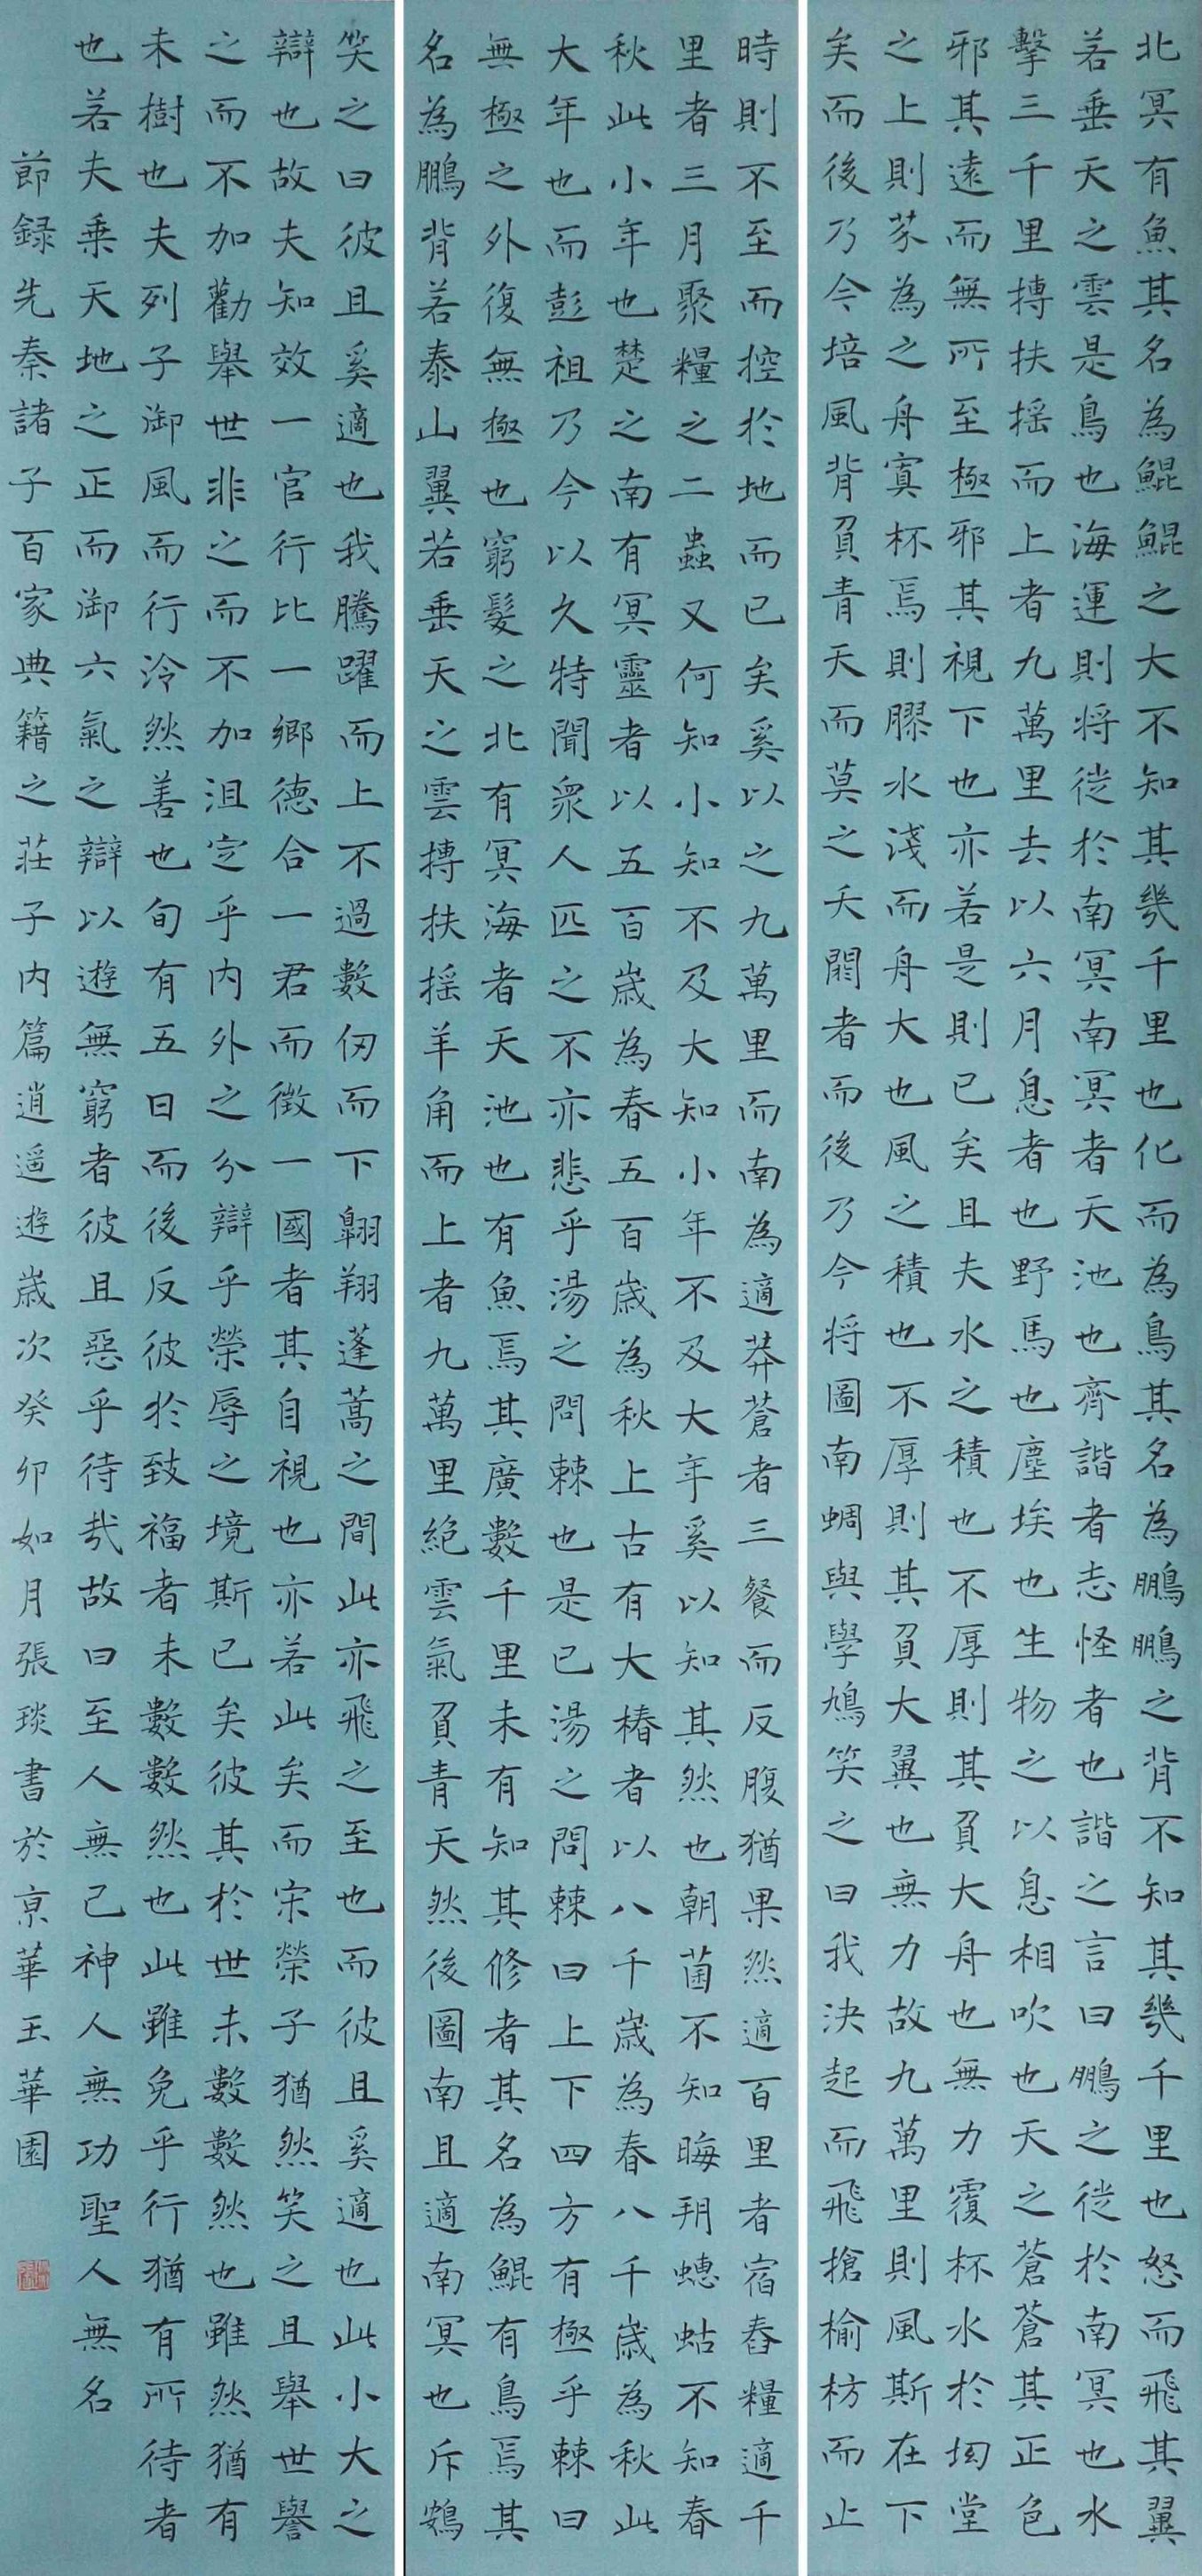 北冥有魚其名為鯤鯤之大不知其幾千里也化而為鳥其名為鵬鵬之背不知其幾千里也怒而飛其翼
若垂天之雲是鳥也海運則将徙於南冥南冥者天池也齊諧者志怪者也諧之言曰鵬之徙於南冥也水
擊三千里摶扶摇而上者九萬里去以六月息者也野馬也塵埃也生物之以息相吹也天之蒼蒼其正色
邪其遠而無所至極邪其視下也亦若是則已矣且夫水之積也不厚則其負大舟也無力覆杯水於坳堂
之上則芥為之舟寘杯焉則膠水淺而舟大也風之積也不厚則其負大翼也無力故九萬里則風斯在下
矣而後乃今培風背負青天而莫之夭閼者而後乃今将圖南蜩與學鳩笑之曰我決起而飛搶榆枋而止
時則不至而控於地而已矣奚以之九萬里而南為適莽蒼者三餐而反腹猶果然適百里者宿舂糧適千
里者三月聚糧之二蟲又何知小知不及大知小年不及大年奚以知其然也朝菌不知晦朔蟪蛄不知春
秋此小年也楚之南有冥靈者以五百歲為春五百歲為秋上古有大椿者以八千歲為春八千歲為秋此
大年也而彭祖乃今以久特聞衆人匹之不亦悲乎湯之問棘也是已湯之問棘曰上下四方有極乎棘曰
無極之外復無極也窮髮之北有冥海者天池也有魚焉其廣數千里未有知其修者其名為鯤有鳥焉其
名為鵬背若泰山翼若垂天之雲摶扶摇羊角而上者九萬里絕雲氣負青天然後圖南且適南冥也斥鴳
笑之曰彼且奚適也我騰躍而上不過數仞而下翱翔蓬蒿之間此亦飛之至也而彼且奚適也此小大之
辯也故夫知效一官行比一鄉德合一君而徵一國者其自視也亦若此矣而宋榮子猶然笑之且舉世譽
之而不加勸舉世非之而不加沮定乎内外之分辯乎榮辱之境斯已矣彼其於世未數數然也雖然猶有
未樹也夫列子御風而行泠然善也旬有五日而後反彼於致福者未數數然也此雖免乎行猶有所待者
也若夫乗天地之正而御六氣之辯以遊無窮者彼且惡乎待哉故曰至人無己神人無功聖人無名
節録先秦諸子百家典籍之莊子内篇逍遥遊歲次癸卯如月張琰書於京華玉華園